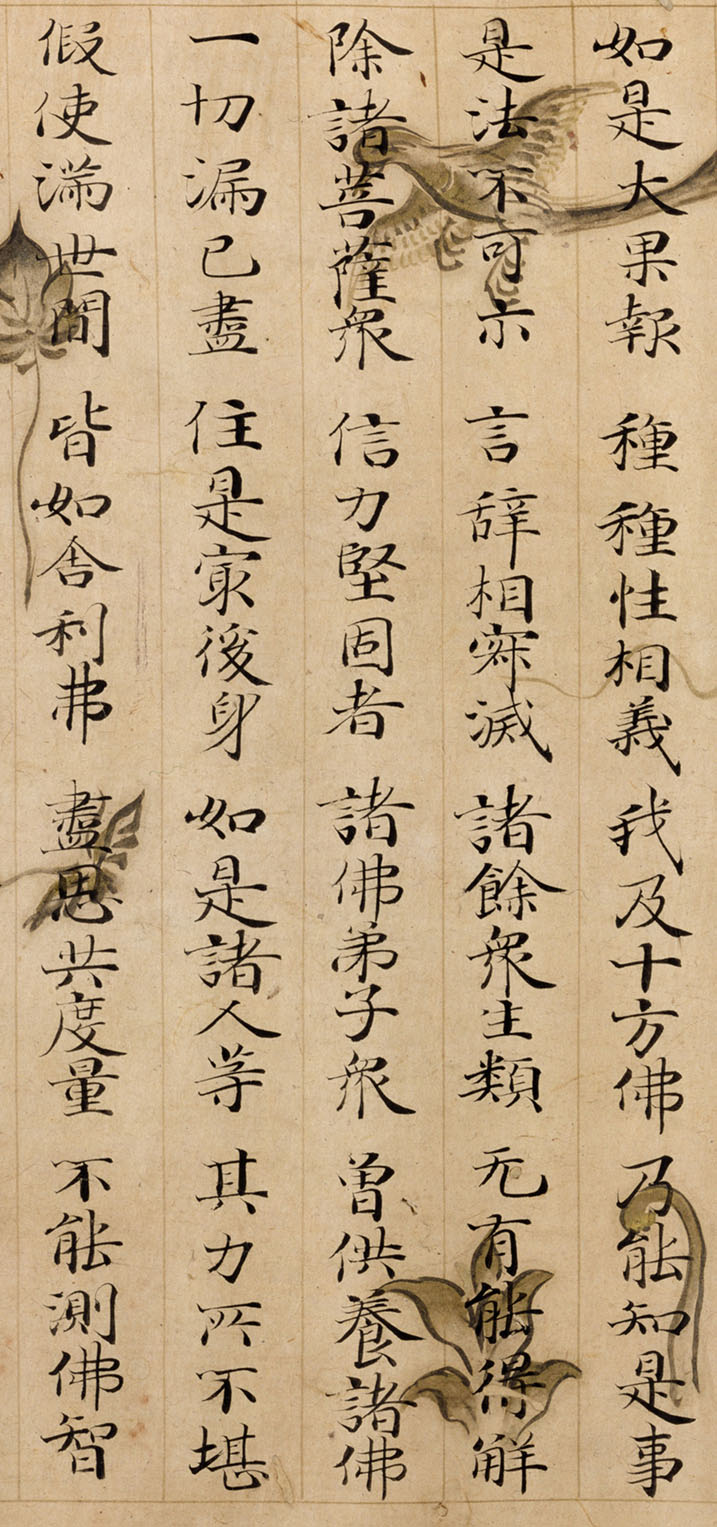 如是大果報 種種性相義 我及十方佛 乃能知是事
是法不可示 言辞相寂滅 諸餘衆生類 无有能得解
除諸菩薩衆 信力堅固者 諸佛弟子衆 曾供養諸佛
一切漏已盡 住是冣後身 如是諸人等 其力所不堪
假使満世間 皆如舎利弗 盡思共度量 不能測佛智